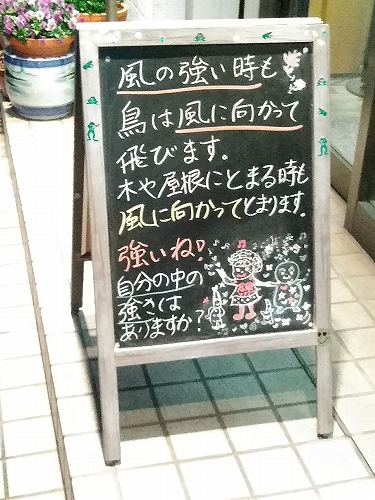 風の強い時も
鳥は風に向かって
飛びます。
木や屋根にとまる時も
風に向かってとまります。
強いね!
自分の中の
強さは
ありますか?